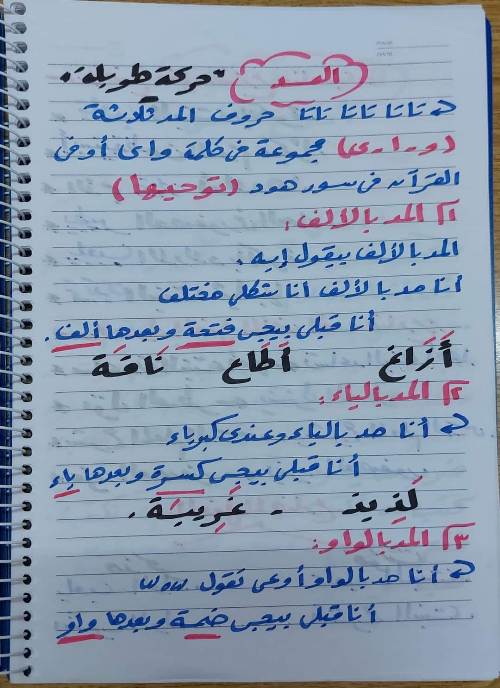 المد "حركة طويلة".
تاتا تاتا تاتا حروف المد ثلاثة
(و-ا-ى) مجموعة فى كلمة واى أو فى
القرآن فى سورة هود (نوحيها)
١) المد بالألف:
المد بالألف بيقول إيه.
أنا مد بالألف أنا شكلى مختلف
أنا قبلى بيجى فتحة وبعدها ألف.
أَزَاغ أَطَاع نَاقَة
٢) المد بالياء:
أنا مد بالياء وعندى كبرياء
أنا قبلى بيجى كسرة وبعدها ياء
لَذِيذ - غَرِيبَة.
٣) المد بالواو:
أنا مد بالواو أوعى تقول wow
أنا قبلى بيجى ضمة وبعدها واو